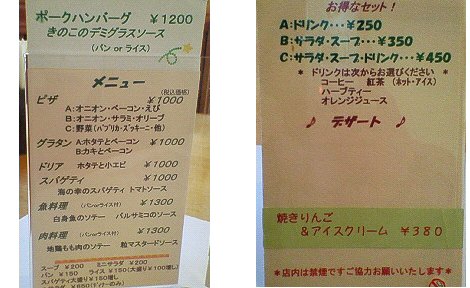 ポークハンバーグ ￥1200
きのこのデミグラスソース
(パン or ライス)
メニュー
(税込価格)
ピザ ￥1000
A:オニオン・ベーコン・えび
B:オニオン・サラミ・オリーブ
C:野菜(パプリカ・ズッキーニ・他)
グラタン A:ホタテとベーコン ￥1000
B:カキとベーコン
ドリア ホタテと小エビ ￥1000
スパゲティ ￥1000
海の幸のスパゲティ トマトソース
魚料理 (パンorライス付) ￥1300
白身魚のソテー バルサミコのソース
肉料理 (パンorライス付) ￥1300
地鶏もも肉のソテー 粒マスタードソース
スープ ￥200 ミニサラダ ￥200
パン ￥150 ライス ￥150(大盛り￥100増し)
スパゲティ大盛り￥150増し
お得なセット!
A:ドリンク・・・￥250
B:サラダ・スープ・・・￥350
C:サラダ・スープ・ドリンク・・・￥450
* ドリンクは次からお選びください *
コーヒー 紅茶 (ホット・アイス)
ハーブティー
オレンジジュース
♪ デザート ♪
焼きりんご
&アイスクリーム ￥380
*店内は禁煙ですご協力お願いいたします*